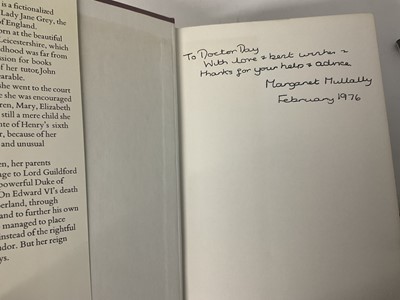 is a fictionalized
Lady Jane Grey, the
of England.
rn at the beautiful
Leicestershire, which
dhood was far from
ssion for books
of her tutor, John
arable.
she went to the court
e she was encouraged
ren, Mary, Elizabeth
still a mere child she
nte of Henry's sixth
r, because of her
and unusual
en, her parents
age to Lord Guildford
powerful Duke of
On Edward VI's death
berland, through
and to further his own
managed to place
instead of the rightful
udor. But her reign
ys.
To Doctor Day
With love & best wishes &
thanks for your help & advice
Margaret Mullally
February 1976